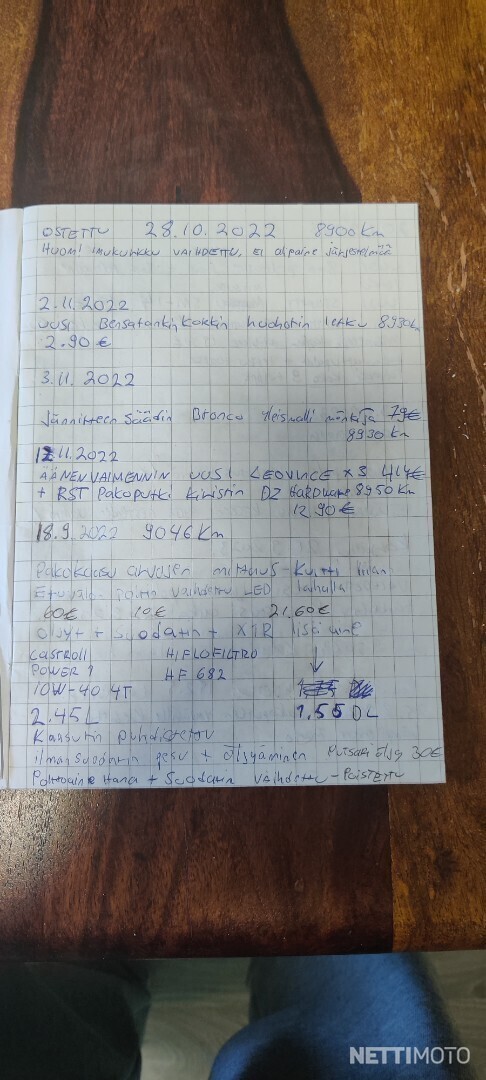 OSTETTU 28.10.2022 8900 Km
HUOM! IMUKURKKU VAIHDETTU, EI alipaine järjestelmää
2.11.2022
UUSI Bensatankin korkin huohotin letku 8930 km
2.90 €
3.11.2022
Jännitteen säädin Bronco yleismalli mönkijä 79€
8930 Km
12.11.2022
ÄÄNENVAIMENNIN UUSI LEOVINCE X3 414€
+ RST Pakoputki kiristin DZ Hardware 8950 Km
12.90 €
18.9.2022 9046 Km
Pakokaasu arvojen mittaus - Kuitti
Etuvalo vaihdettu LED
60€ 10€ 21.60€
Öljyt + Suodatin + X1R lisäaine
CASTROLL HIFLOFILTRO
POWER 1 HF 682
10W-40 4T
2.45L 1.55 DL
Kaasutin puhdistettu
ilmansuodatin pesu + Öljyäminen Putsari öljy 30€
Polttoaine Hana + Suodatin vaihdettu - POISTETTU
NETTIMOTO